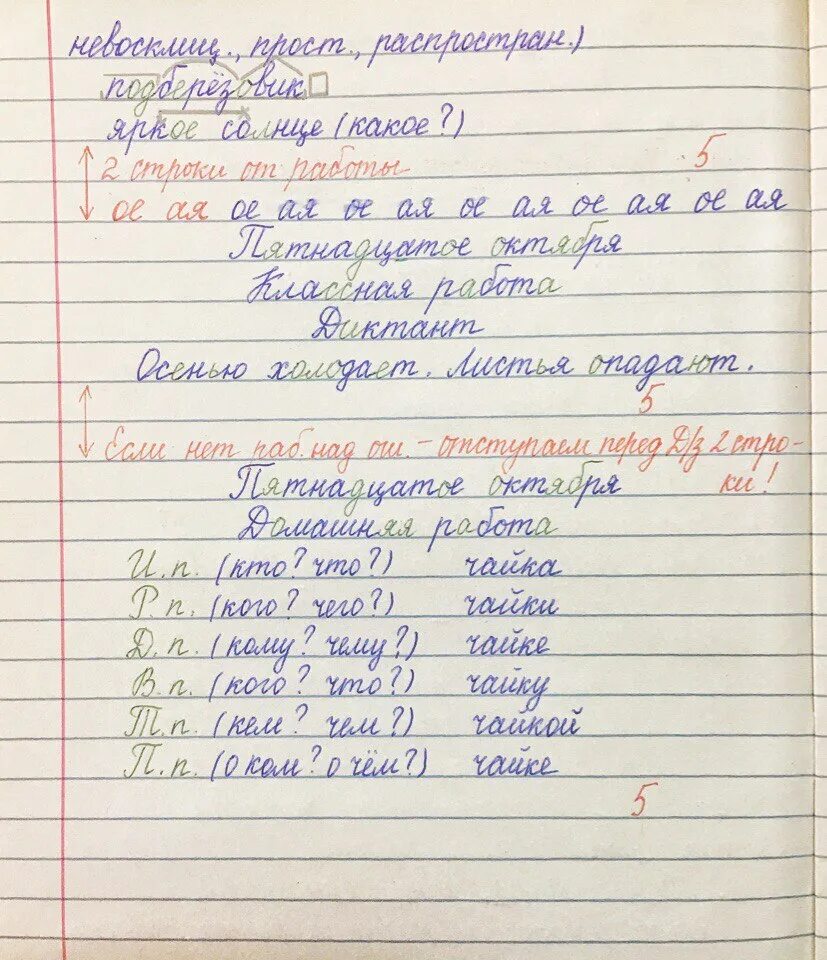 невосклиц., прост., распростран.)
подберёзовик
яркое солнце (какое?)
5
2 строки от работы
ое ая ое ая ое ая ое ая ое ая ое ая
Пятнадцатое октября
Классная работа
Диктант
Осенью холодает. Листья опадают.
5
Если нет раб. над ош. - отступаем перед Д/з 2 стро-
ки!
Пятнадцатое октября
Домашняя работа
И. п. (кто? что?) чайка
Р. п. (кого? чего?) чайки
Д. п. (кому? чему?) чайке
В. п. (кого? что?) чайку
Т. п. (кем? чем?) чайкой
П. п. (о ком? о чём?) чайке
5